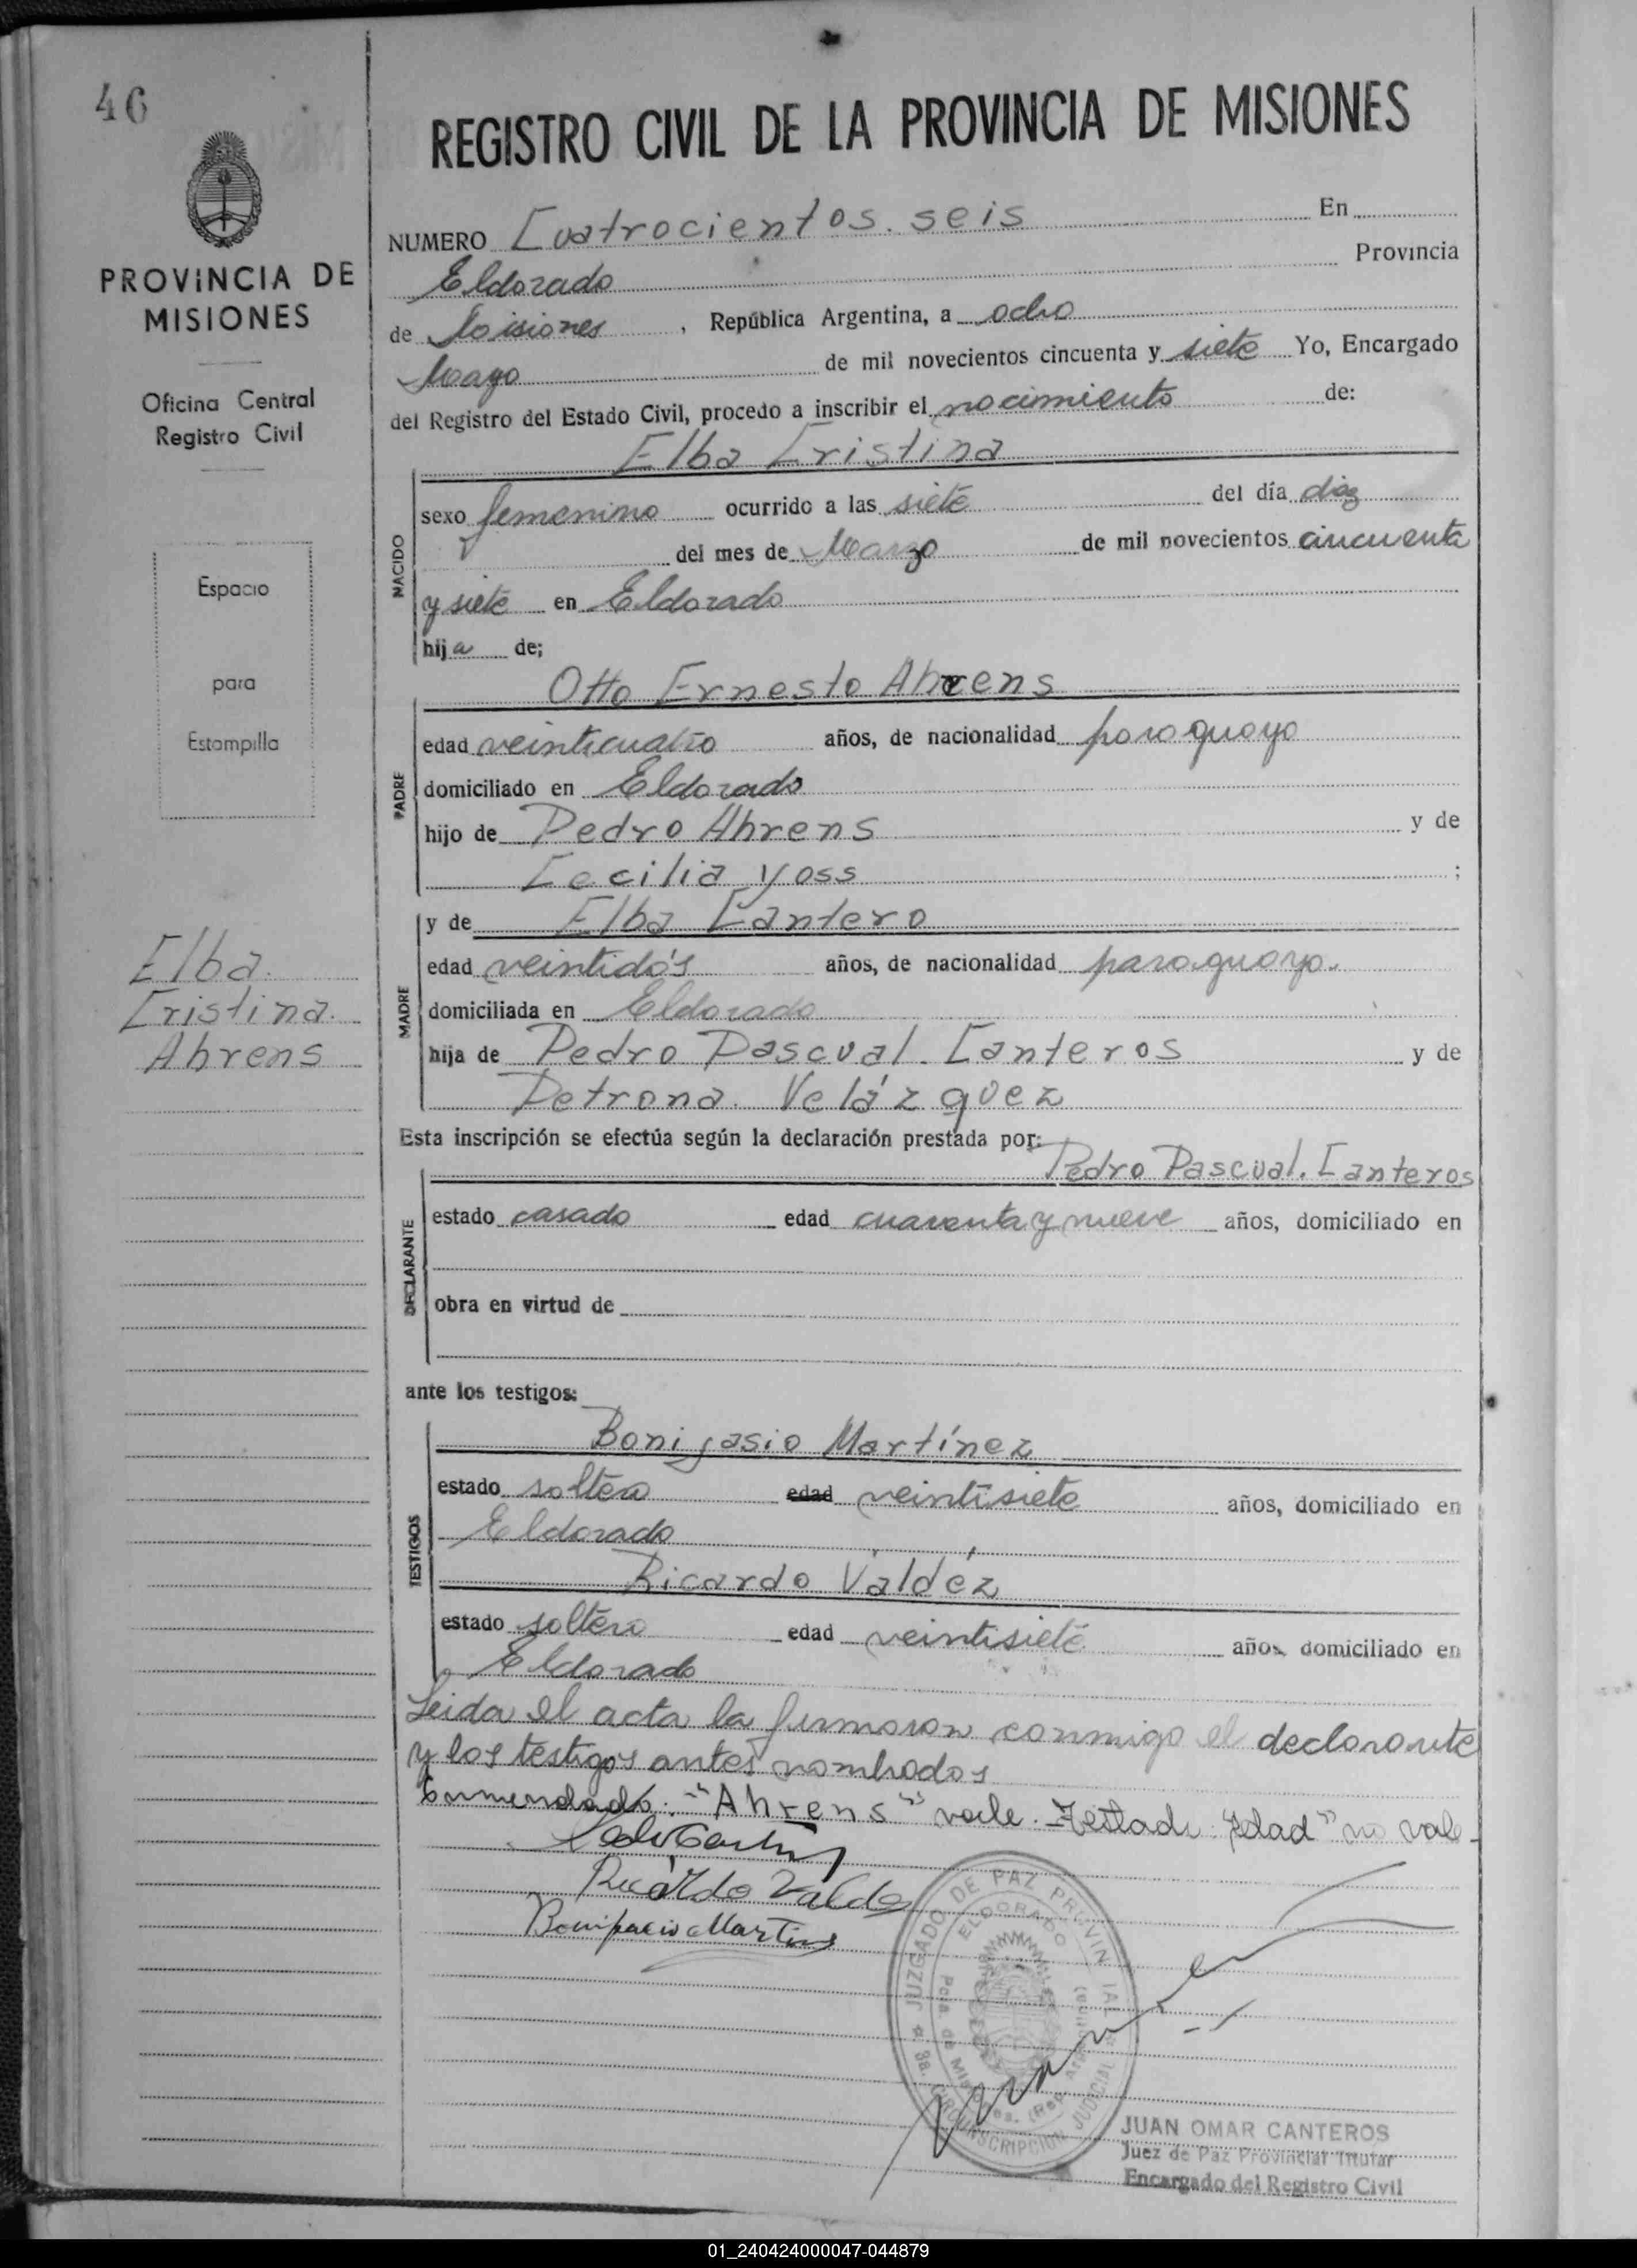 46
REGISTRO CIVIL DE LA PROVINCIA DE MISIONES
PROVINCIA DE
MISIONES
Oficina Central
Registro Civil
Espacio
para
Estampilla
Elba
Cristina
Ahrens
NUMERO Cuatrocientos seis En
Eldorado Provincia
de Misiones, República Argentina, a ocho
Mayo de mil novecientos cincuenta y siete Yo, Encargado
del Registro del Estado Civil, procedo a inscribir el nacimiento de:
Elba Cristina
NACIDO
sexo femenino ocurrido a las siete del día diez
del mes de Marzo de mil novecientos cincuenta
y siete en Eldorado
hija de;
Otto Ernesto Ahrens
PADRE
edad veinticuatro años, de nacionalidad paraguayo
domiciliado en Eldorado
hijo de Pedro Ahrens y de
Cecilia Yoss ;
y de Elba Cantero
MADRE
edad veintidós años, de nacionalidad paraguaya.
domiciliada en Eldorado
hija de Pedro Pascual Canteros y de
Petrona Velázquez
Esta inscripción se efectúa según la declaración prestada por:
Pedro Pascual Canteros
DECLARANTE
estado casado edad cuarenta y nueve años, domiciliado en
obra en virtud de
ante los testigos:
Bonifasio Martínez
TESTIGOS
estado soltero edad veintisiete años, domiciliado en
Eldorado
Ricardo Valdéz
estado soltero edad veintisiete años domiciliado en
Eldorado
Leida el acta la firmaron conmigo el declarante
y los testigos antes nombrados
Enmendado: "Ahrens" vale. Testado: "edad" no vale-
Ricardo Valdez
Bonifacio Martinez
JUZGADO DE PAZ PROVINCIAL
3a. CIRCUNSCRIPCION JUDICIAL
ELDORADO
Pcia. de Misiones. (Rep. Argentina)
JUAN OMAR CANTEROS
Juez de Paz Provincial Titular
Encargado del Registro Civil
01_240424000047-044879